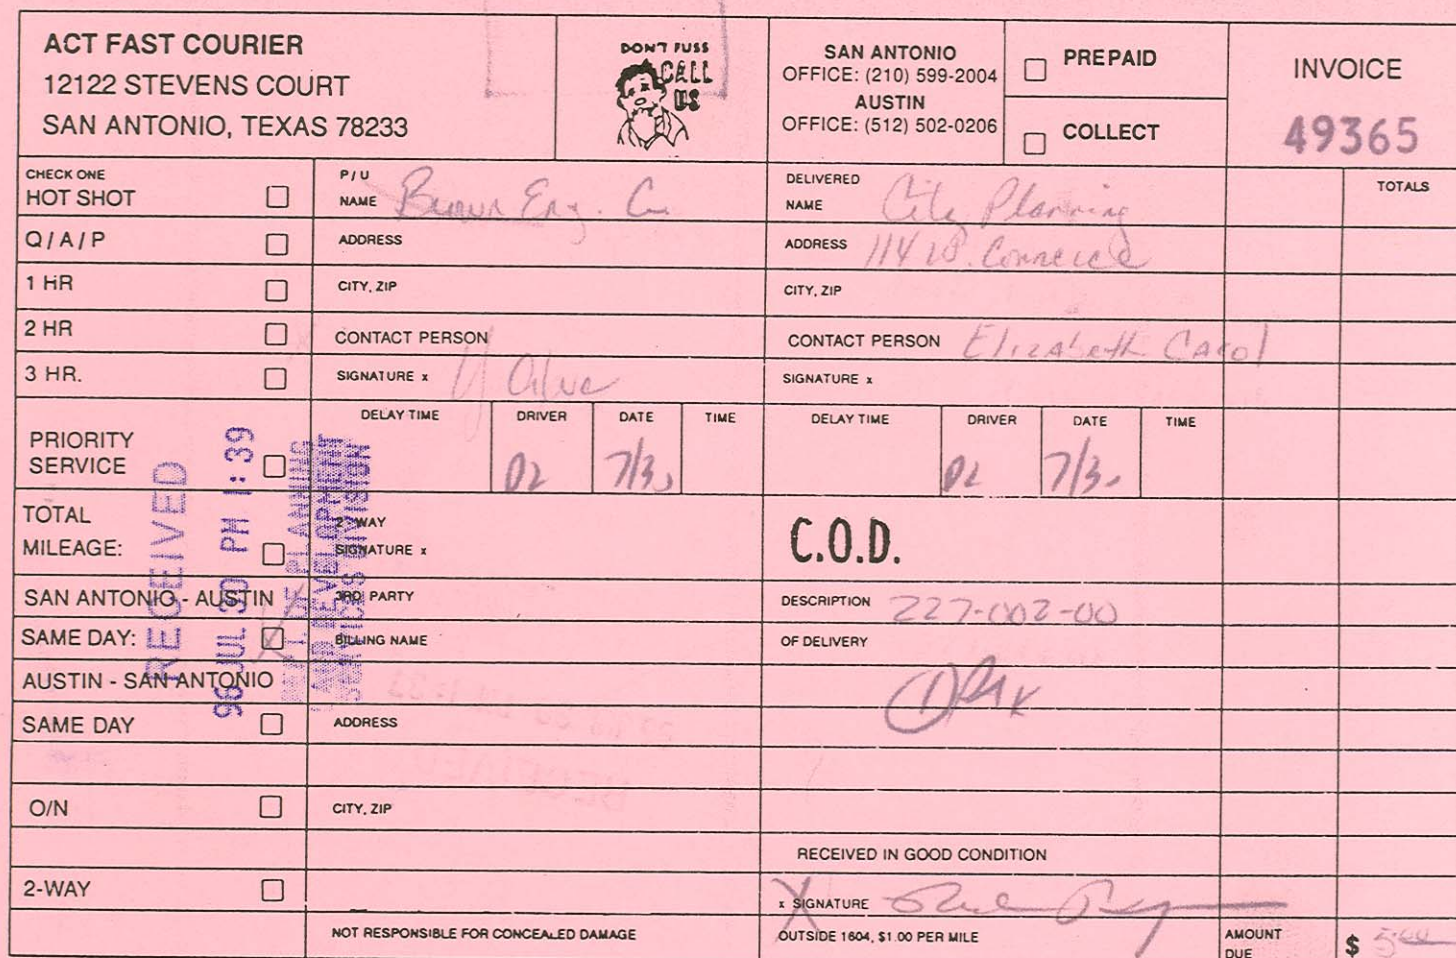 ACT FAST COURIER
12122 STEVENS COURT
SAN ANTONIO, TEXAS 78233
DON'T FUSS
CALL
US
SAN ANTONIO
OFFICE: (210) 599-2004
AUSTIN
OFFICE: (512) 502-0206
PREPAID
COLLECT
INVOICE
49365
CHECK ONE
HOT SHOT
Q / A / P
1 HR
2 HR
3 HR.
PRIORITY
SERVICE
TOTAL
MILEAGE:
SAN ANTONIO - AUSTIN
SAME DAY:
AUSTIN - SAN ANTONIO
SAME DAY
O/N
2-WAY
RECEIVED
96 JUL 30 PM 1:39
DEPT. OF PLANNING
LAND DEVELOPMENT
SERVICES DIVISION
P / U
NAME Brown Eng. Co.
ADDRESS
CITY, ZIP
CONTACT PERSON
SIGNATURE x
DELAY TIME DRIVER DATE TIME
02 7/30
2-WAY
SIGNATURE x
3RD PARTY
BILLING NAME
ADDRESS
CITY, ZIP
NOT RESPONSIBLE FOR CONCEALED DAMAGE
DELIVERED
NAME City Planning
ADDRESS 114 W. Commerce
CITY, ZIP
CONTACT PERSON Elizabeth Carol
SIGNATURE x
DELAY TIME DRIVER DATE TIME
02 7/30
C.O.D.
DESCRIPTION 227-002-00
OF DELIVERY
RECEIVED IN GOOD CONDITION
x SIGNATURE
OUTSIDE 1604, $1.00 PER MILE
TOTALS
AMOUNT
DUE
$ 5.00